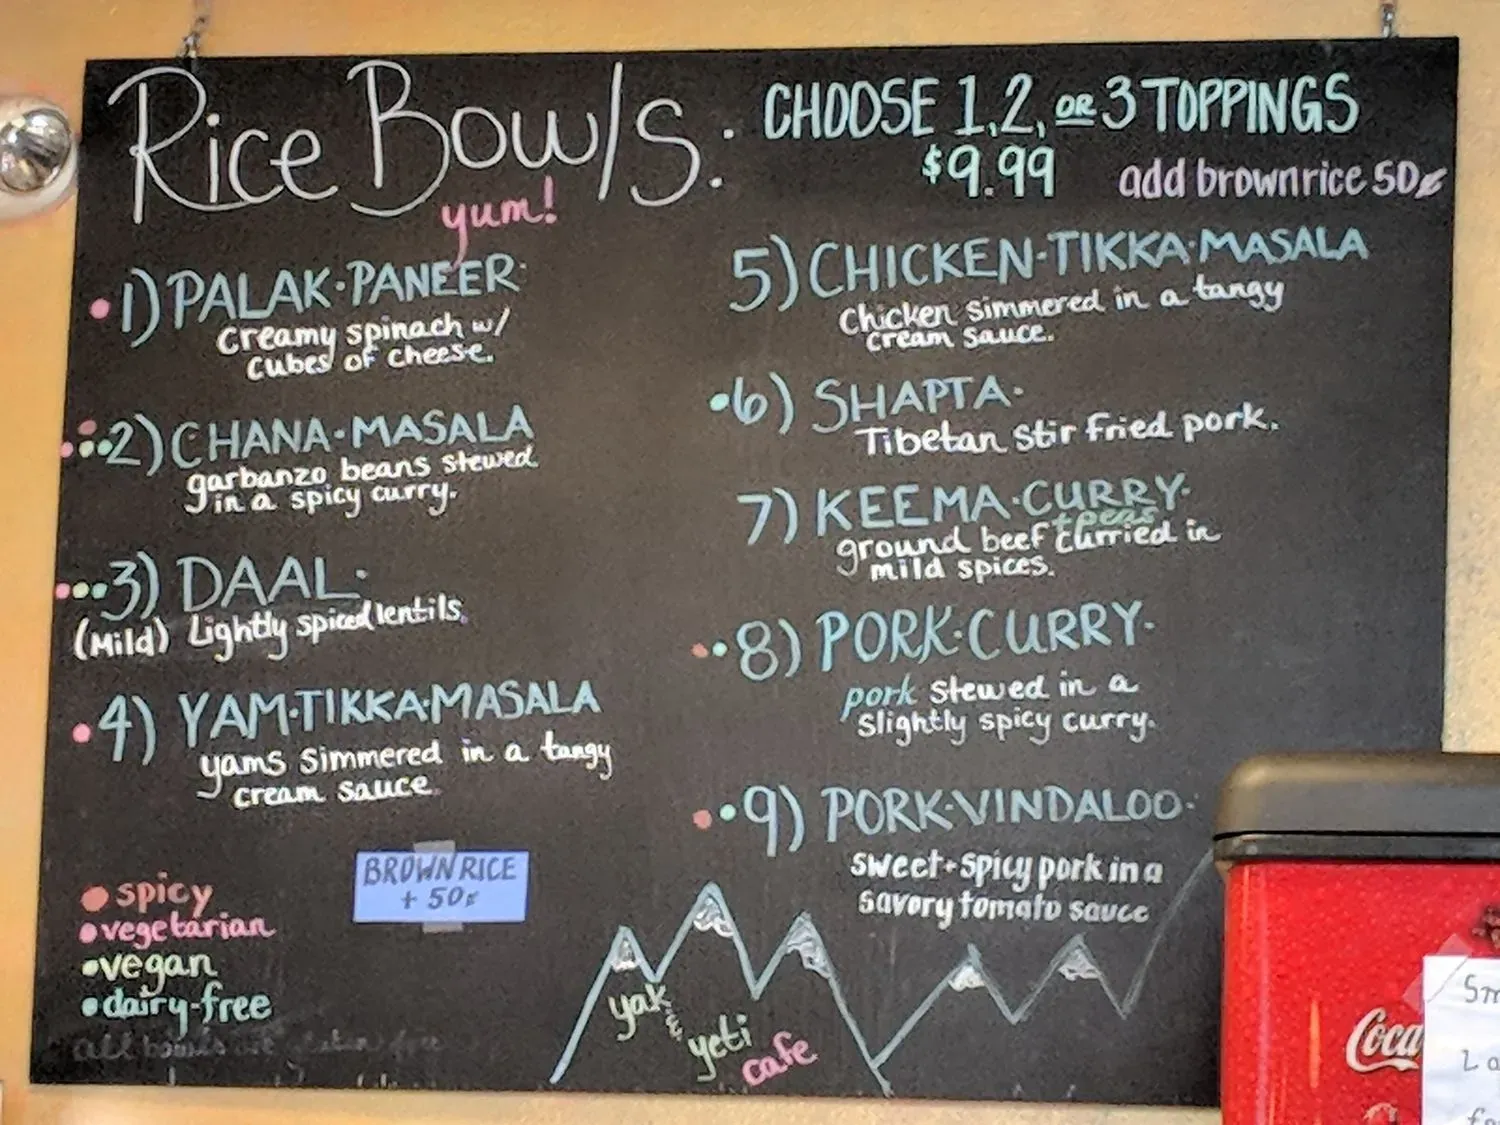 Rice Bowls:
yum!
CHOOSE 1, 2, OR 3 TOPPINGS
$9.99
add brown rice 50¢
1) PALAK·PANEER·
Creamy spinach w/
cubes of cheese.
2) CHANA·MASALA
garbanzo beans stewed
in a spicy curry.
3) DAAL·
(Mild) Lightly spiced lentils.
4) YAM·TIKKA·MASALA
yams simmered in a tangy
cream sauce.
5) CHICKEN·TIKKA·MASALA
Chicken simmered in a tangy
cream sauce.
6) SHAPTA·
Tibetan stir fried pork.
7) KEEMA·CURRY·
+ peas
ground beef curried in
mild spices.
8) PORK·CURRY·
pork stewed in a
slightly spicy curry.
9) PORK·VINDALOO·
sweet + spicy pork in a
savory tomato sauce
BROWN RICE
+ 50¢
spicy
vegetarian
vegan
dairy-free
all bowls free
yak & yeti cafe
Coca
Sm
La